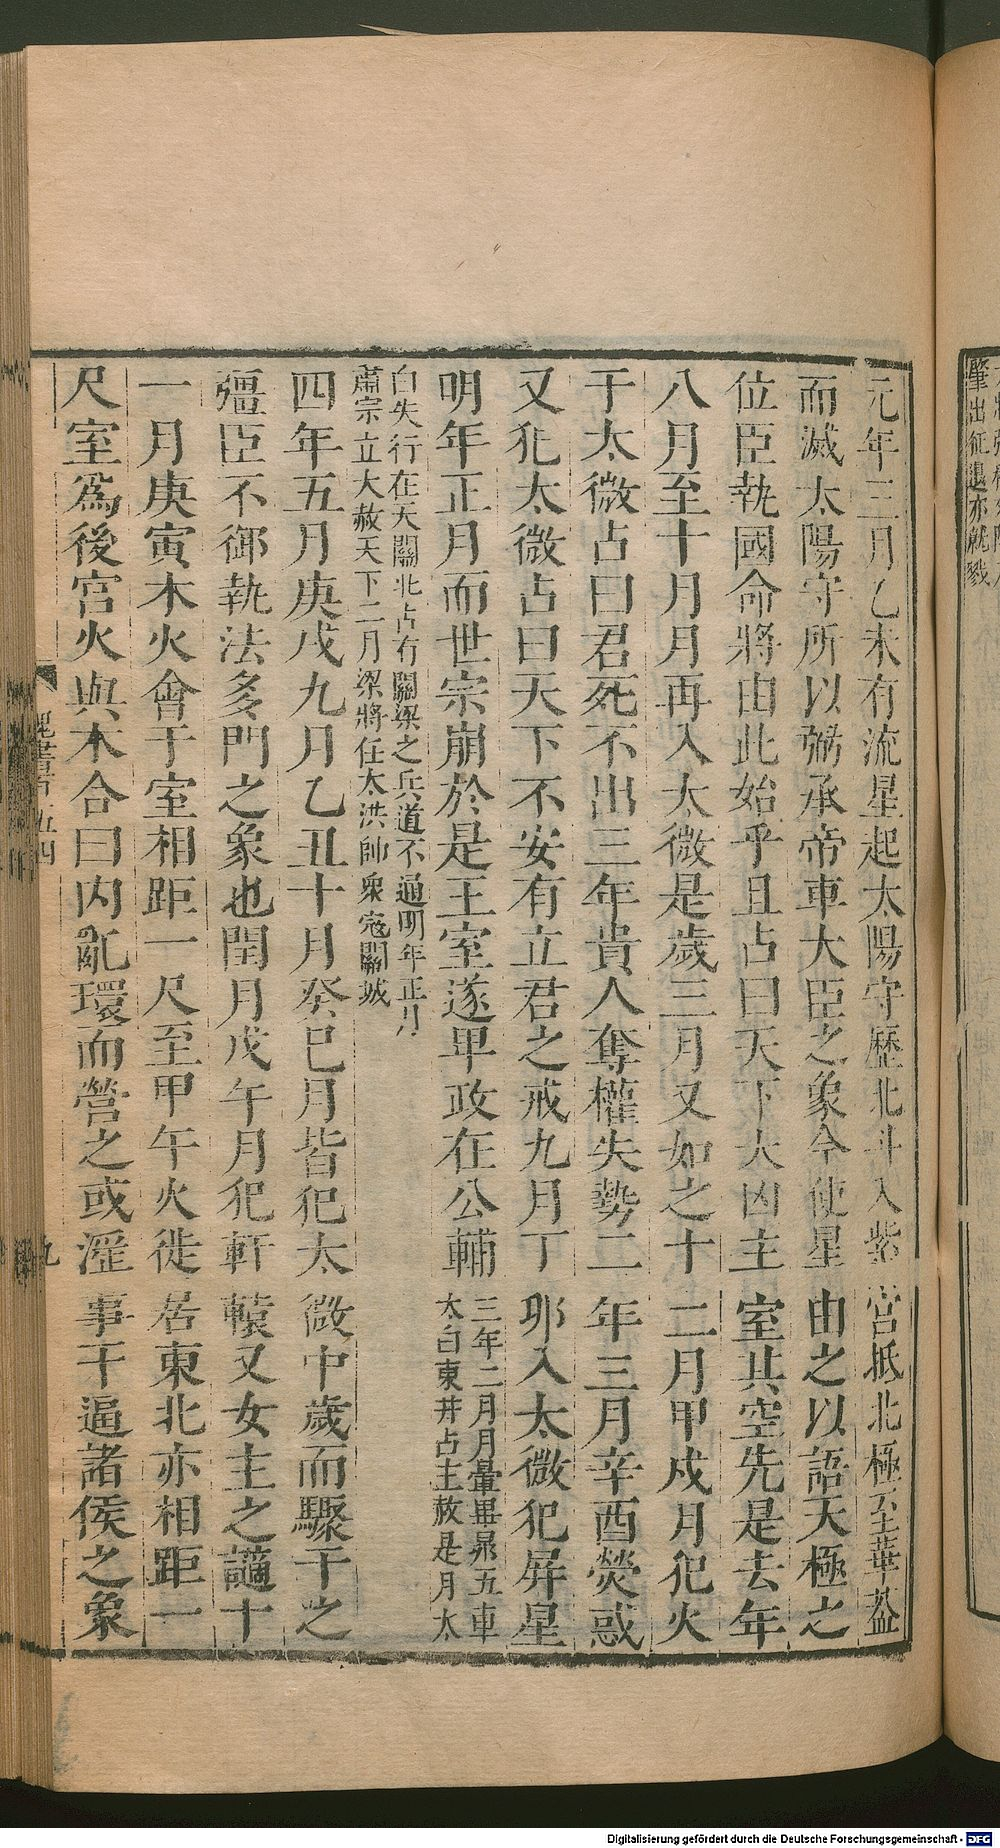 肇出征遇亦就戮
元年三月乙未有流星起太陽守歷北斗入紫宮抵北極至華葢
而滅太陽守所以弼承帝車大臣之象今使星由之以語天極之
位臣執國命將由此始乎且占曰天下大凶主室其空先是去年
八月至十月月再入太微是歲三月又如之十二月甲戌月犯火
于太微占曰君死不出三年貴人奪權失勢二年三月辛酉熒惑
又犯太微占曰天下不安有立君之戒九月丁卯入太微犯屏星
明年正月而世宗崩於是王室遂卑政在公輔
三年二月月暈畢昴五車
太白東井占主赦是月太
白失行在天關北占有關梁之兵道不通明年正月
肅宗立大赦天下二月梁將任太洪帥衆寇關城
四年五月庚戌九月乙丑十月癸巳月皆犯太微中歲而驟干之
彊臣不御執法多門之象也閏月戊午月犯軒轅又女主之謫十
一月庚寅木火會于室相距一尺至甲午火徙居東北亦相距一
尺室爲後宮火與木合曰内亂環而營之或淫事干逼諸侯之象
魏書百五四
九
Digitalisierung gefördert durch die Deutsche Forschungsgemeinschaft - DFG